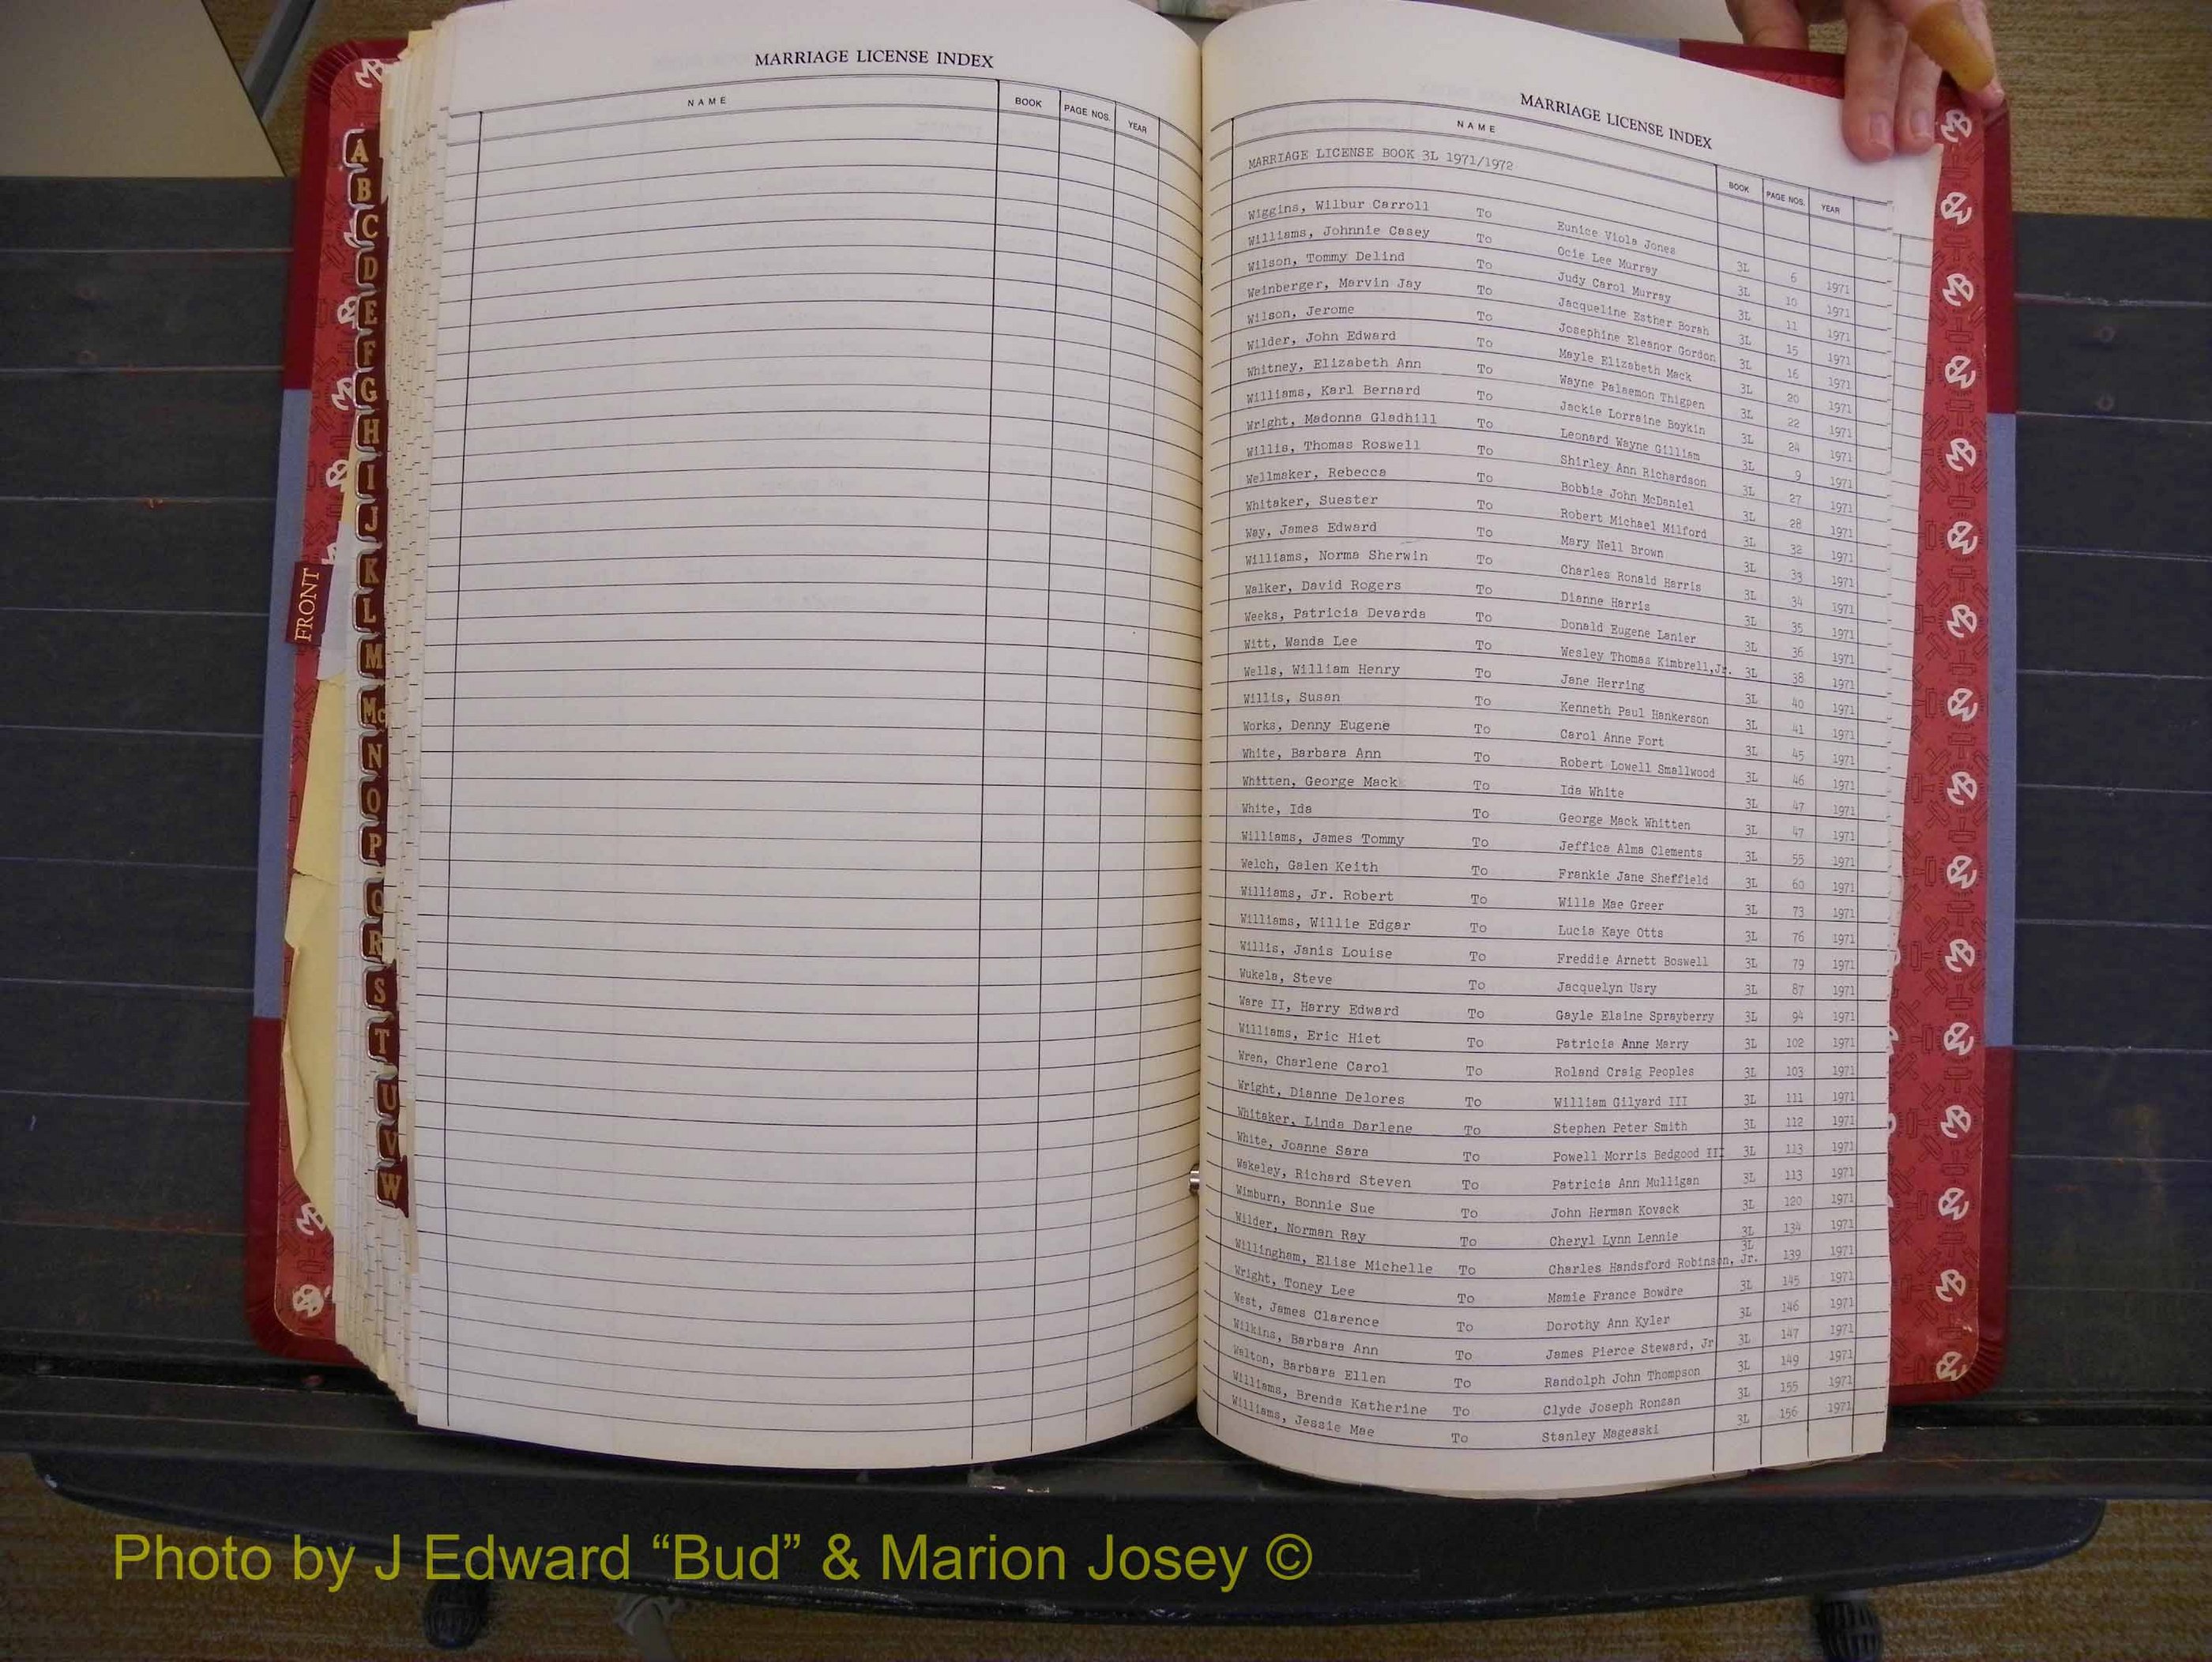 MARRIAGE LICENSE INDEX
NAME BOOK PAGE NOS. YEAR
MARRIAGE LICENSE INDEX
NAME BOOK PAGE NOS. YEAR
MARRIAGE LICENSE BOOK 3L 1971/1972
Wiggins, Wilbur Carroll To Eunice Viola Jones 3L 6 1971
Williams, Johnnie Casey To Ocie Lee Murray 3L 10 1971
Wilson, Tommy Delind To Judy Carol Murray 3L 11 1971
Weinberger, Marvin Jay To Jacqueline Esther Borah 3L 15 1971
Wilson, Jerome To Josephine Eleanor Gordon 3L 16 1971
Wilder, John Edward To Mayle Elizabeth Mack 3L 20 1971
Whitney, Elizabeth Ann To Wayne Palaemon Thigpen 3L 22 1971
Williams, Karl Bernard To Jackie Lorraine Boykin 3L 24 1971
Wright, Madonna Gladhill To Leonard Wayne Gilliam 3L 9 1971
Willis, Thomas Roswell To Shirley Ann Richardson 3L 27 1971
Wellmaker, Rebecca To Bobbie John McDaniel 3L 28 1971
Whitaker, Suester To Robert Michael Milford 3L 32 1971
Way, James Edward To Mary Nell Brown 3L 33 1971
Williams, Norma Sherwin To Charles Ronald Harris 3L 34 1971
Walker, David Rogers To Dianne Harris 3L 35 1971
Weeks, Patricia Devarda To Donald Eugene Lanier 3L 36 1971
Witt, Wanda Lee To Wesley Thomas Kimbrell,Jr. 3L 38 1971
Wells, William Henry To Jane Herring 3L 40 1971
Willis, Susan To Kenneth Paul Hankerson 3L 41 1971
Works, Denny Eugene To Carol Anne Fort 3L 45 1971
White, Barbara Ann To Robert Lowell Smallwood 3L 46 1971
Whitten, George Mack To Ida White 3L 47 1971
White, Ida To George Mack Whitten 3L 47 1971
Williams, James Tommy To Jeffica Alma Clements 3L 55 1971
Welch, Galen Keith To Frankie Jane Sheffield 3L 60 1971
Williams, Jr. Robert To Willa Mae Greer 3L 73 1971
Williams, Willie Edgar To Lucia Kaye Otts 3L 76 1971
Willis, Janis Louise To Freddie Arnett Boswell 3L 79 1971
Wukela, Steve To Jacquelyn Usry 3L 87 1971
Ware II, Harry Edward To Gayle Elaine Sprayberry 3L 94 1971
Williams, Eric Hiet To Patricia Anne Marry 3L 102 1971
Wren, Charlene Carol To Roland Craig Peoples 3L 103 1971
Wright, Dianne Delores To William Gilyard III 3L 111 1971
Whitaker, Linda Darlene To Stephen Peter Smith 3L 112 1971
White, Joanne Sara To Powell Morris Bedgood III 3L 113 1971
Wakeley, Richard Steven To Patricia Ann Mulligan 3L 113 1971
Wimburn, Bonnie Sue To John Herman Kovack 3L 120 1971
Wilder, Norman Ray To Cheryl Lynn Lennie 3L 134 1971
Willingham, Elise Michelle To Charles Handsford Robinson, Jr. 3L 139 1971
Wright, Toney Lee To Mamie France Bowdre 3L 145 1971
West, James Clarence To Dorothy Ann Kyler 3L 146 1971
Wilkins, Barbara Ann To James Pierce Steward, Jr 3L 147 1971
Walton, Barbara Ellen To Randolph John Thompson 3L 149 1971
Williams, Brenda Katherine To Clyde Joseph Ronsan 3L 155 1971
Williams, Jessie Mae To Stanley Mageaski 3L 156 1971
A
B
C
D
E
F
G
H
I
J
K
L
M
Mc
N
O
P
Q
R
S
T
U
V
W
FRONT
Photo by J Edward “Bud” & Marion Josey ©